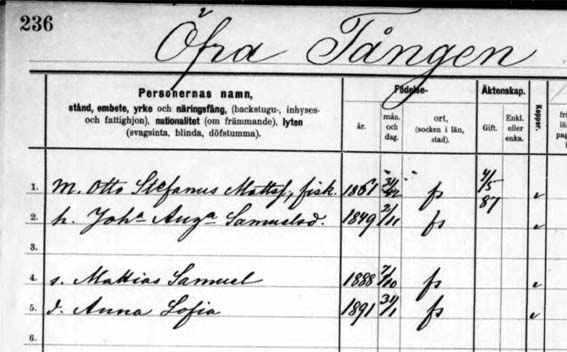 236
Öfra Tången
Personernas namn,
stånd, embete, yrke och näringsfång, (backstugu-, inhyses-
och fattighjon), nationalitet (om främmande), lyten
(svagsinta, blinda, döfstumma).
Födelse-
år.
mån.
och
dag.
ort,
(socken i län,
stad).
Äktenskap.
Gift.
Enkl.
eller
enka.
Koppor.
1. M. Otto Stefanus Mattsf, fisk. 1861 fs 4/5 87
2. h. Joha Auga Samuelsd. 1849 2/11 fs
3.
4. s. Mattias Samuel 1888 7/10 fs
5. d. Anna Sofia 1891 31/1 fs
6.